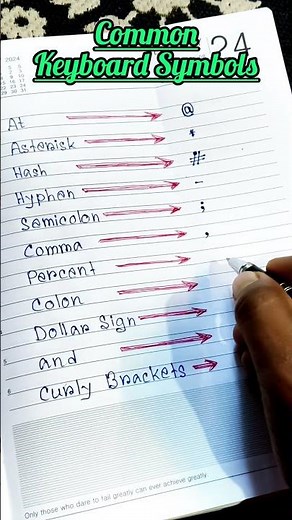 Common
Keyboard Symbols
2024
24
At @
Asterisk *
Hash #
Hyphen -
Semicolon ;
Comma ,
Percent
Colon
Dollar Sign
and
Curly Brackets
Only those who dare to fail greatly can ever achieve greatly.